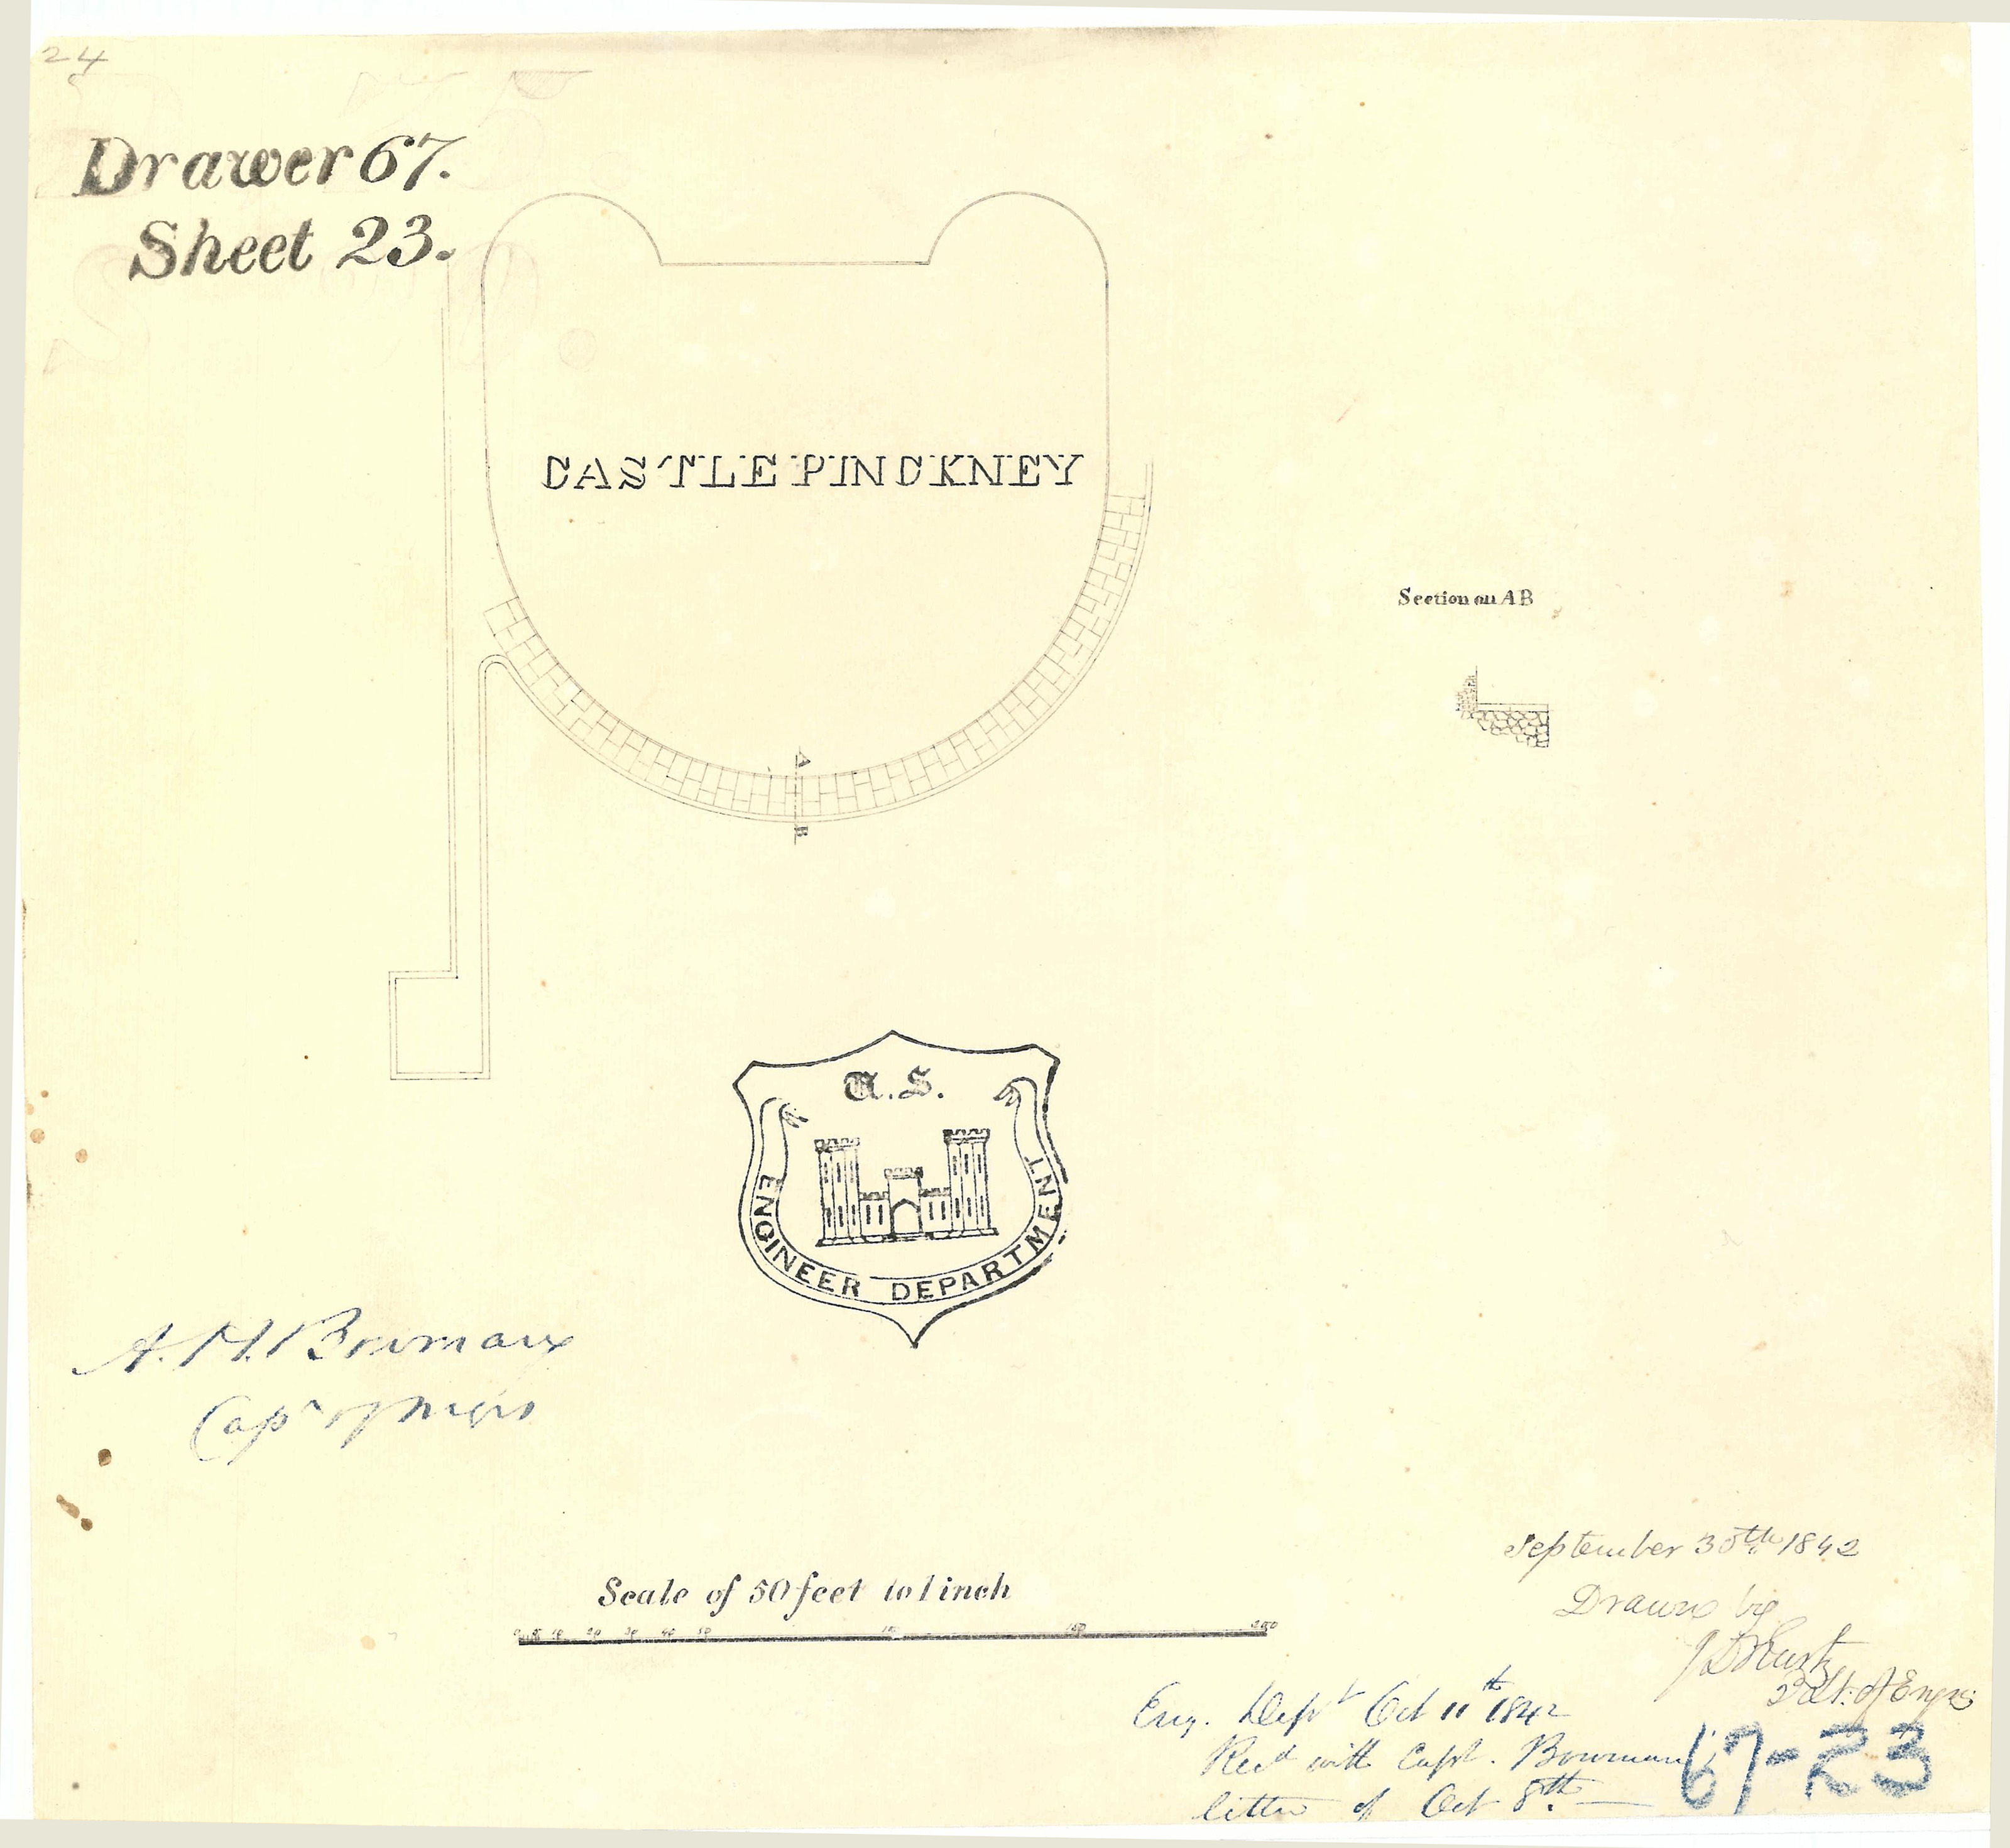 24
Drawer 67.
Sheet 23.
CASTLE PINCKNEY
Section on AB
A
B
U.S.
ENGINEER DEPARTMENT
A. H. Bowman
Capt of Engrs
Scale of 50 feet to 1 inch
10 20 30 40 50 100 150 200
September 30th 1842
Drawn by
J D Kurtz
2d Lt. of Engrs
Eng. Dept Oct 11th 1842
Recd with Capt. Bowman
letter of Oct 8th.
67-23